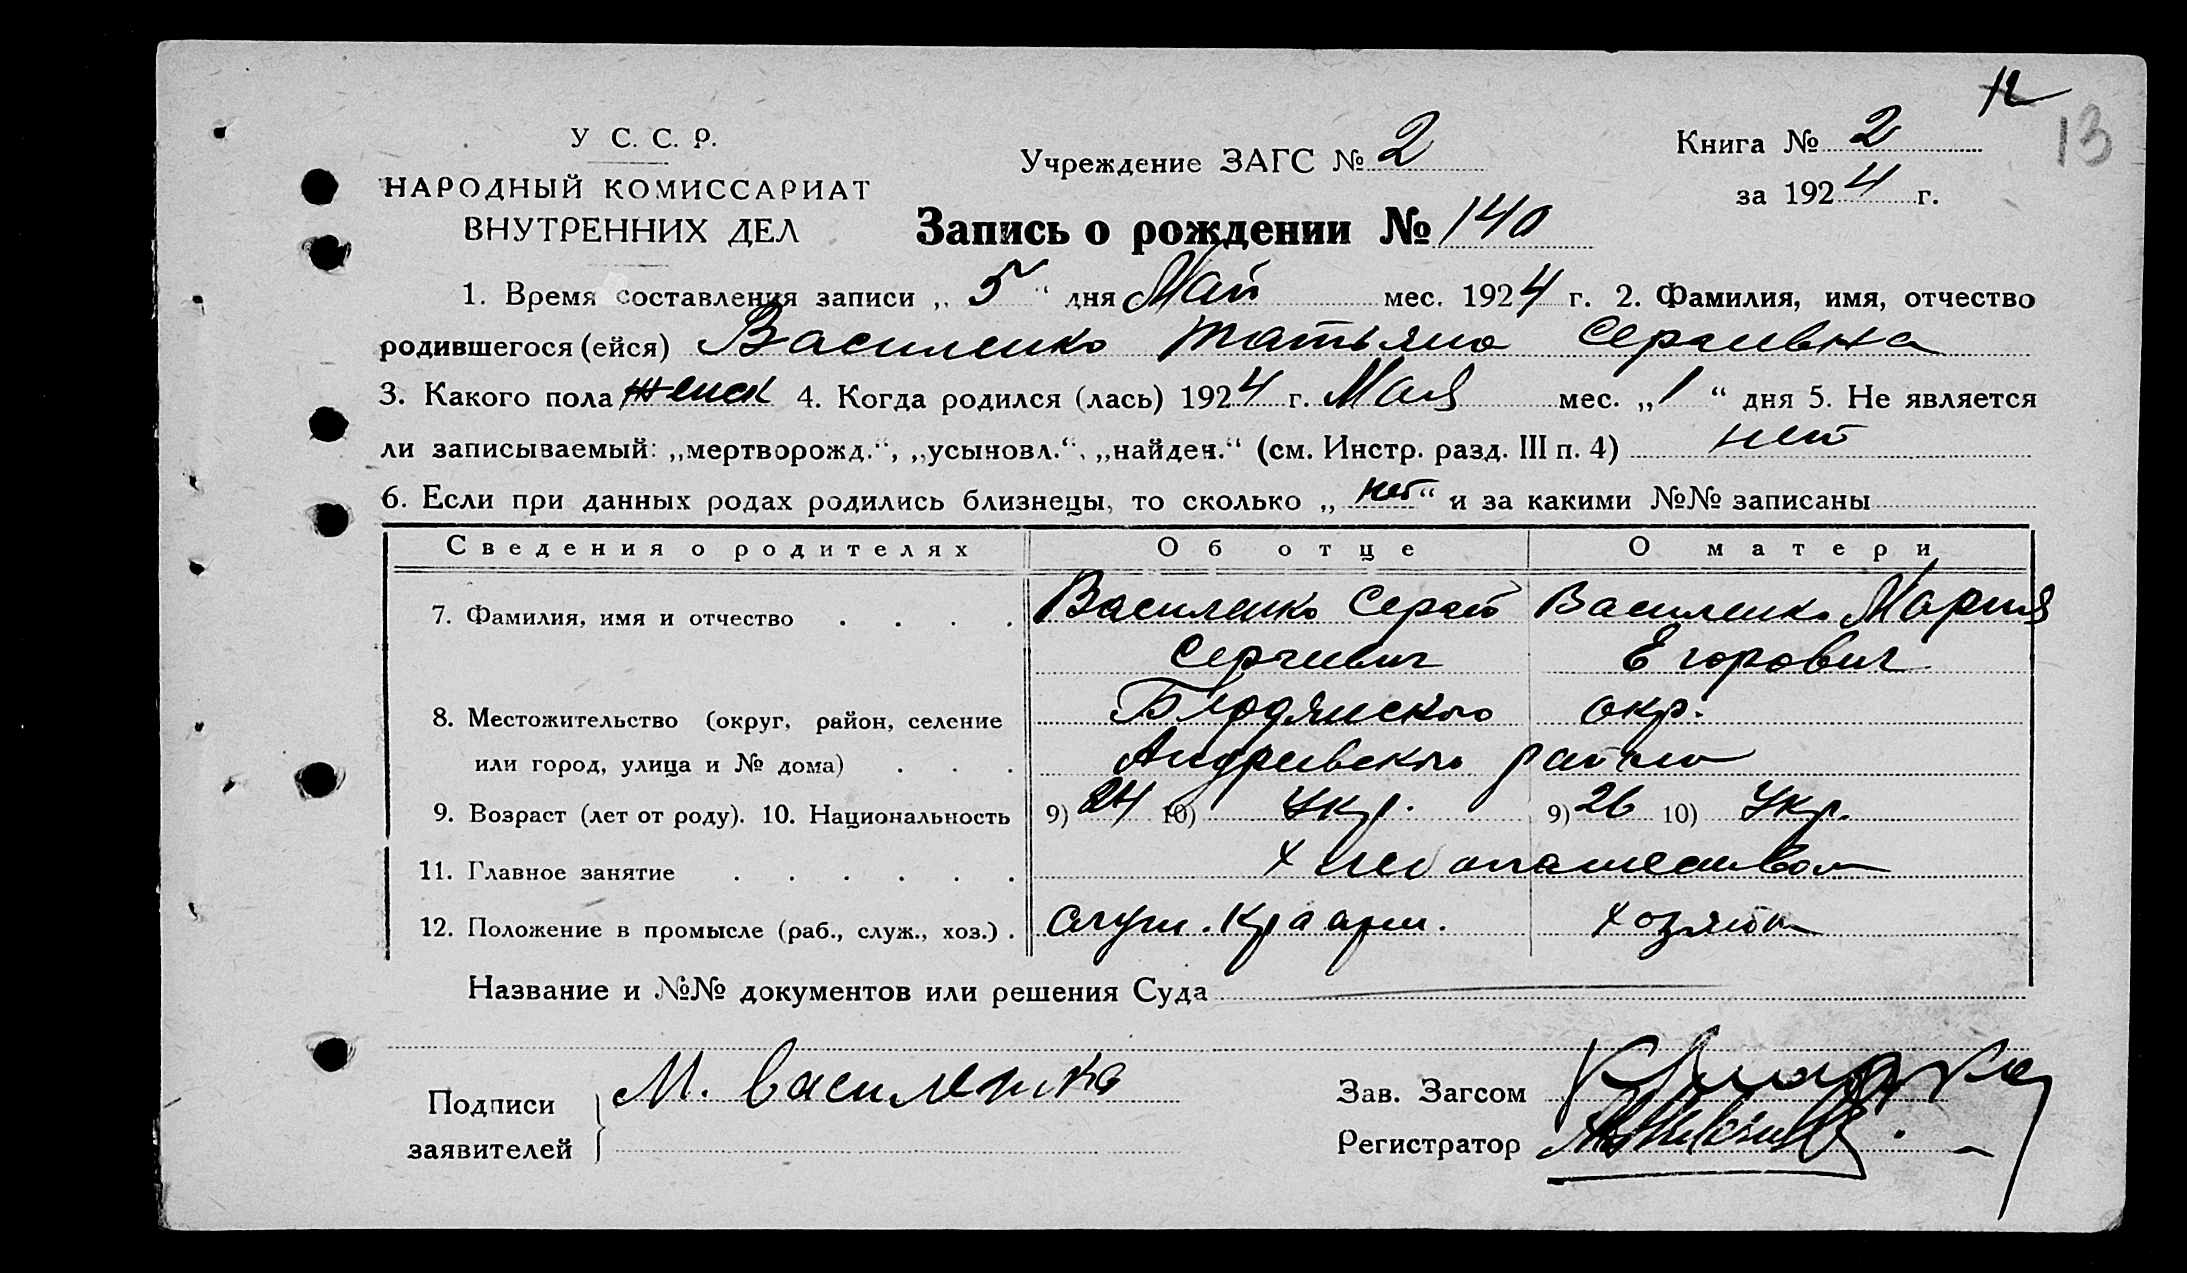 12
13
У С. С. Р.
НАРОДНЫЙ КОМИССАРИАТ
ВНУТРЕННИХ ДЕЛ
Учреждение ЗАГС № 2
Книга № 2
за 1924 г.
Запись о рождении № 140
1. Время составления записи „ 5 “ дня Май мес. 1924 г. 2. Фамилия, имя, отчество
родившегося (ейся) Василенко Татьяна Сергеивна
3. Какого пола женск 4. Когда родился (лась) 1924 г. Мая мес. „ 1 “ дня 5. Не является
ли записываемый: „мертворожд.“, „усыновл.“, „найден.“ (см. Инстр. разд. III п. 4) нет
6. Если при данных родах родились близнецы, то сколько „ нет “ и за какими №№ записаны
Сведения о родителях Об отце О матери
7. Фамилия, имя и отчество . . . . Василенко Сергей Василенко Мария
Сергиевич Егорович
8. Местожительство (округ, район, селение Бердянского окр.
или город, улица и № дома) . . . Андреевского района
9. Возраст (лет от роду). 10. Национальность 9) 24 10) Укр. 9) 26 10) Укр.
11. Главное занятие . . . . . . хлебопашеством
12. Положение в промысле (раб., служ., хоз.) . служ. Кра арм. хозяйка
Название и №№ документов или решения Суда
Подписи
заявителей
М. Василенко
Зав. Загсом
Регистратор